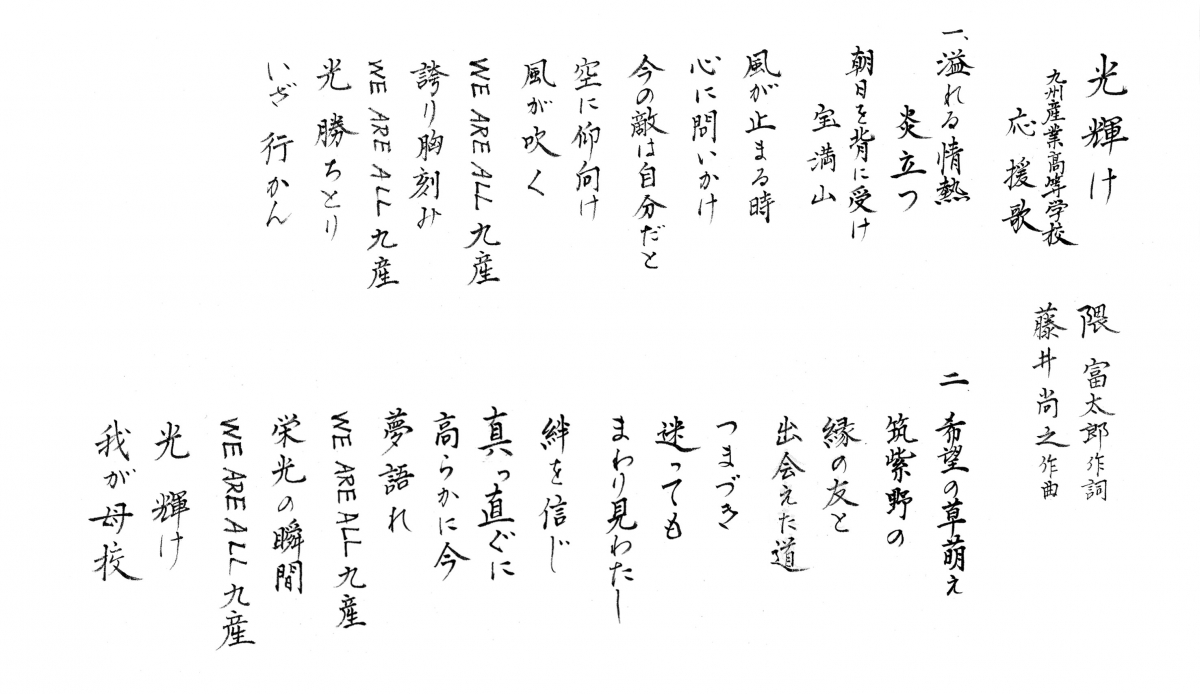 光輝け
九州産業高等学校
応援歌
隈 富太郎 作詞
藤井尚之 作曲
一、溢れる情熱
炎立つ
朝日を背に受け
宝満山
風が止まる時
心に問いかけ
今の敵は自分だと
空に仰向け
風が吹く
WE ARE ALL 九産
誇り胸刻み
WE ARE ALL 九産
光 勝ちとり
いざ 行かん
二 希望の草萌え
筑紫野の
縁の友と
出会えた道
つまづき
迷っても
まわり見わたし
絆を信じ
真っ直ぐに
高らかに今
夢語れ
WE ARE ALL 九産
栄光の瞬間
WE ARE ALL 九産
光 輝け
我が母校